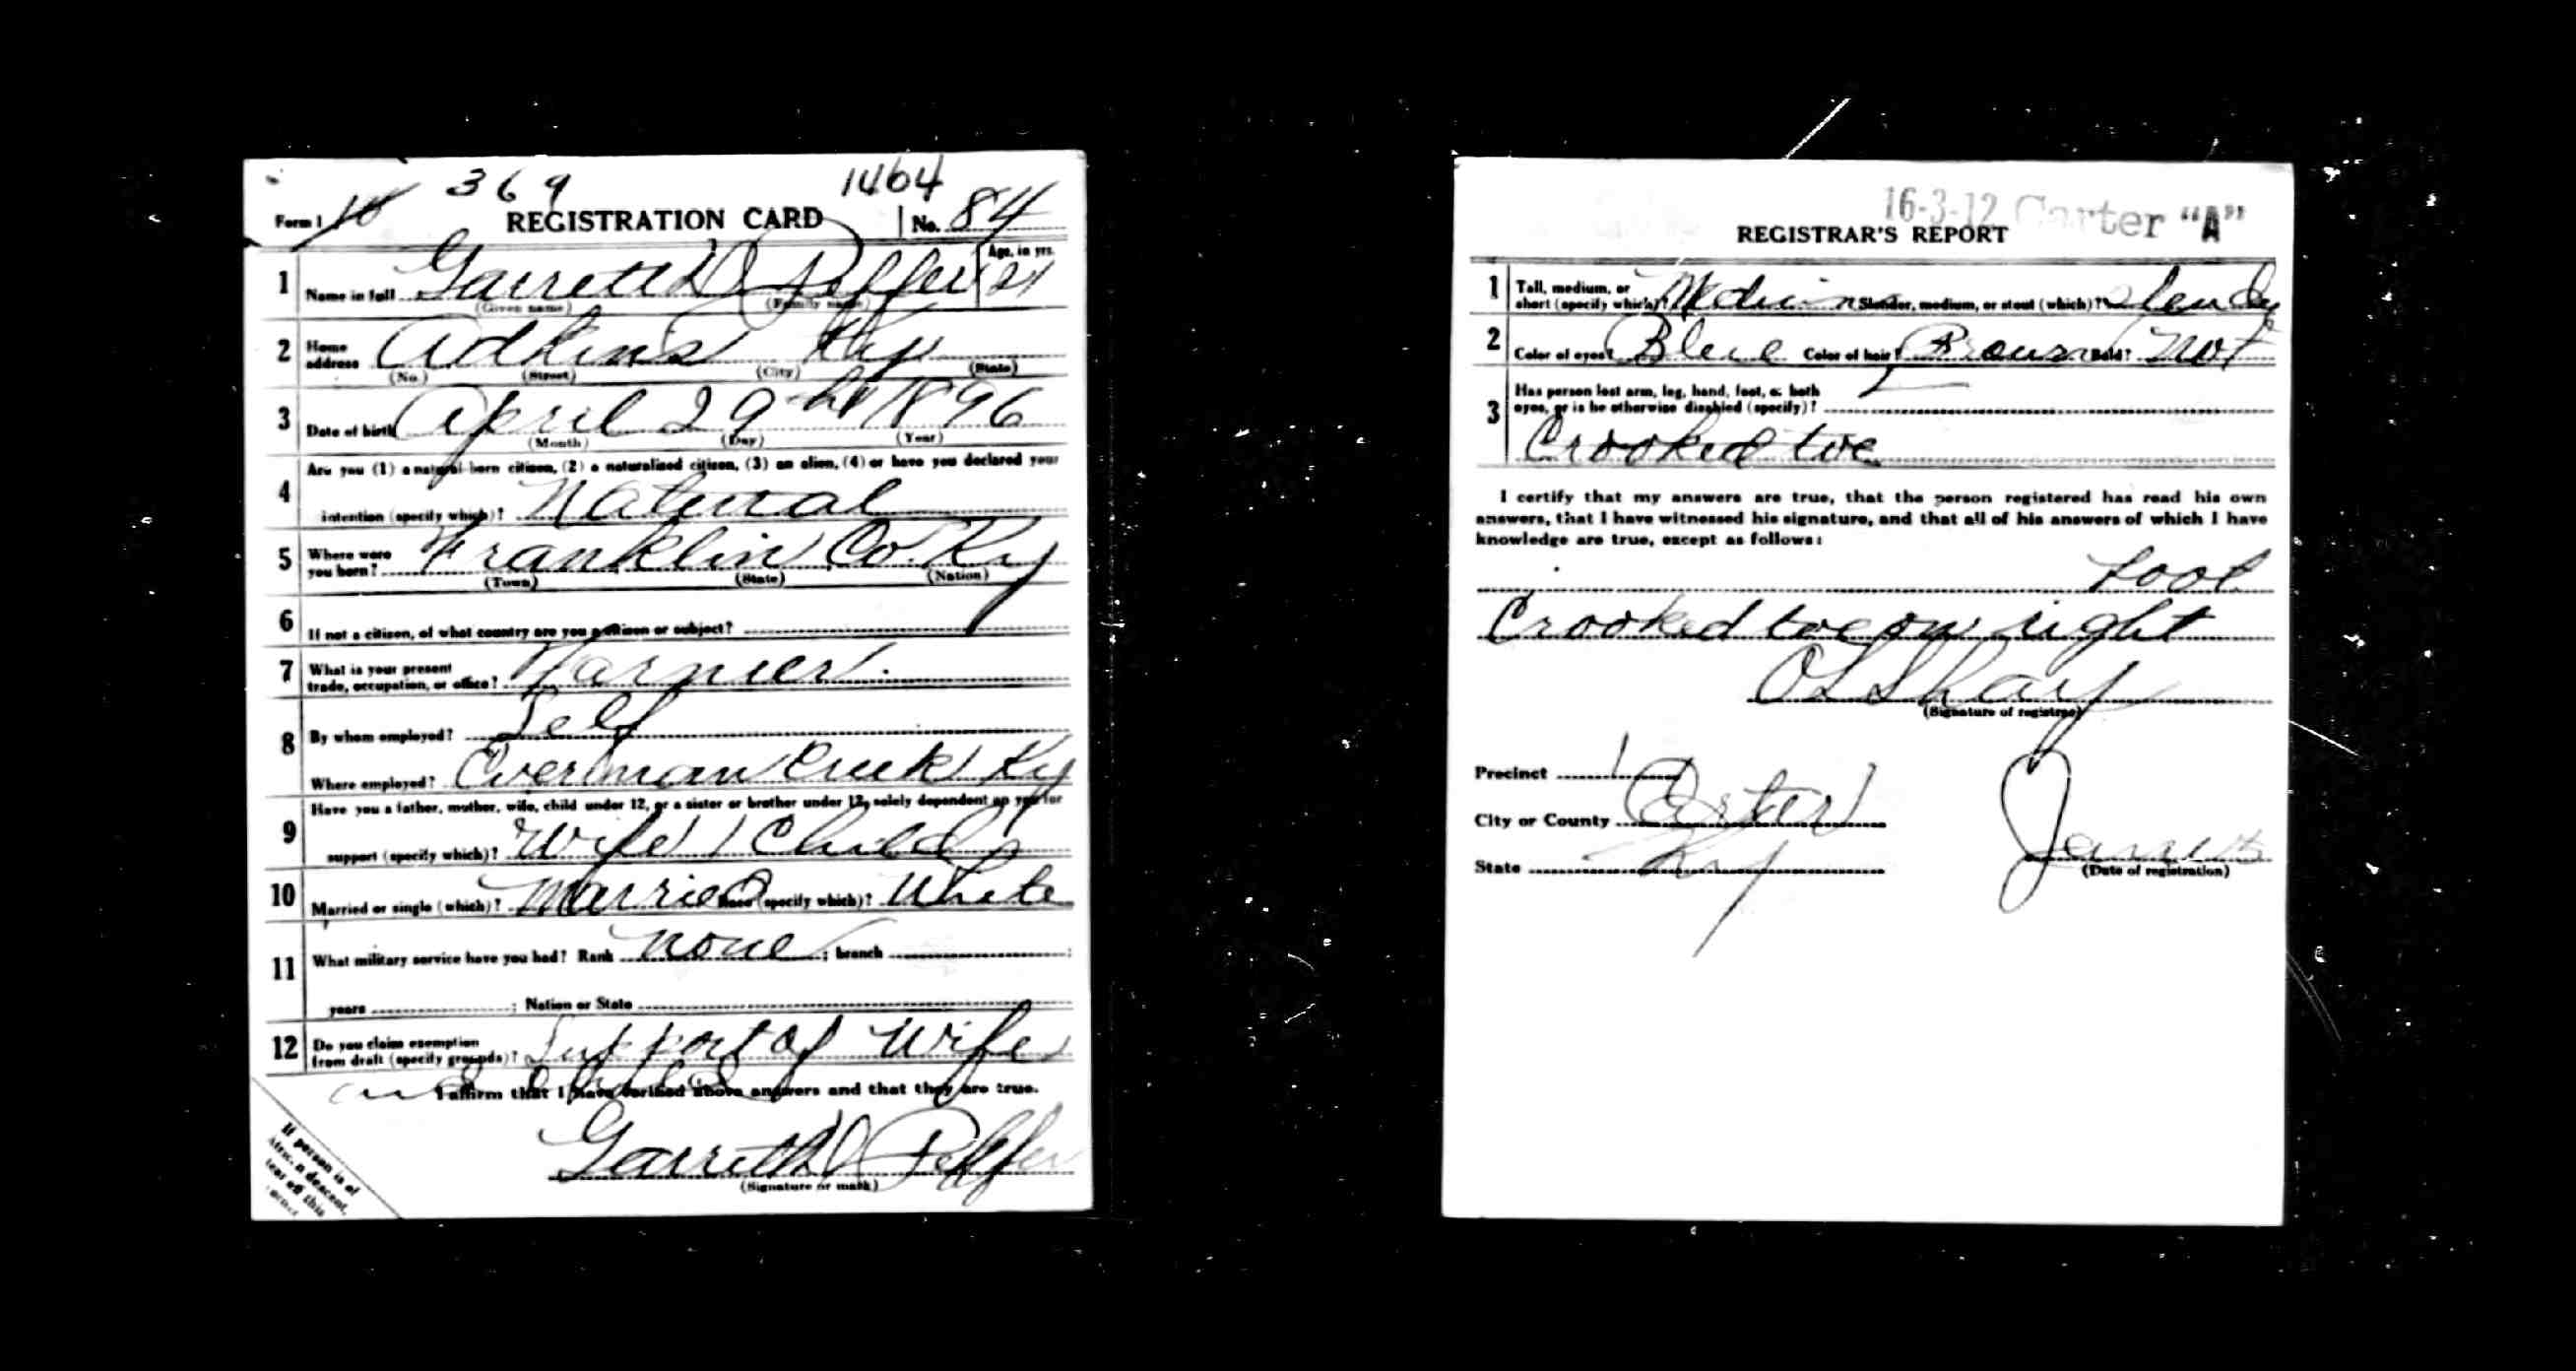 369 1464
Form 1 REGISTRATION CARD No. 84
1 Name in full Garrett D Peffer Age, in yrs. 21
(Given name) (Family name)
2 Home address Adkins Ky
(No.) (Street) (City) (State)
3 Date of birth April 29th 1896
(Month) (Day) (Year)
4 Are you (1) a natural-born citizen, (2) a naturalized citizen, (3) an alien, (4) or have you declared your
intention (specify which)? Natural
5 Where were you born? Franklin Co. Ky
(Town) (State) (Nation)
6 If not a citizen, of what country are you a citizen or subject?
7 What is your present trade, occupation, or office? Farmer
8 By whom employed? Self
Where employed? Everman Creek Ky
9 Have you a father, mother, wife, child under 12, or a sister or brother under 12, solely dependent on you for
support (specify which)? Wife 1 Child
10 Married or single (which)? Married Race (specify which)? White
11 What military service have you had? Rank none ; branch ;
years ; Nation or State
12 Do you claim exemption from draft (specify grounds)? Support of Wife
and Child
I affirm that I have verified above answers and that they are true.
Garrett D Peffer
(Signature or mark)
If person is of
African descent,
tear off this
corner
16-3-12 Carter "A"
REGISTRAR'S REPORT
1 Tall, medium, or short (specify which)? Medium Slender, medium, or stout (which)?
2 Color of eyes? Blue Color of hair? Brown Bald? Not
3 Has person lost arm, leg, hand, foot, or both eyes, or is he otherwise disabled (specify)?
Crooked toe
I certify that my answers are true, that the person registered has read his own
answers, that I have witnessed his signature, and that all of his answers of which I have
knowledge are true, except as follows:
foot
Crooked toe on right
(Signature of registrar)
Precinct 1
City or County Carter
State Ky
(Date of registration)